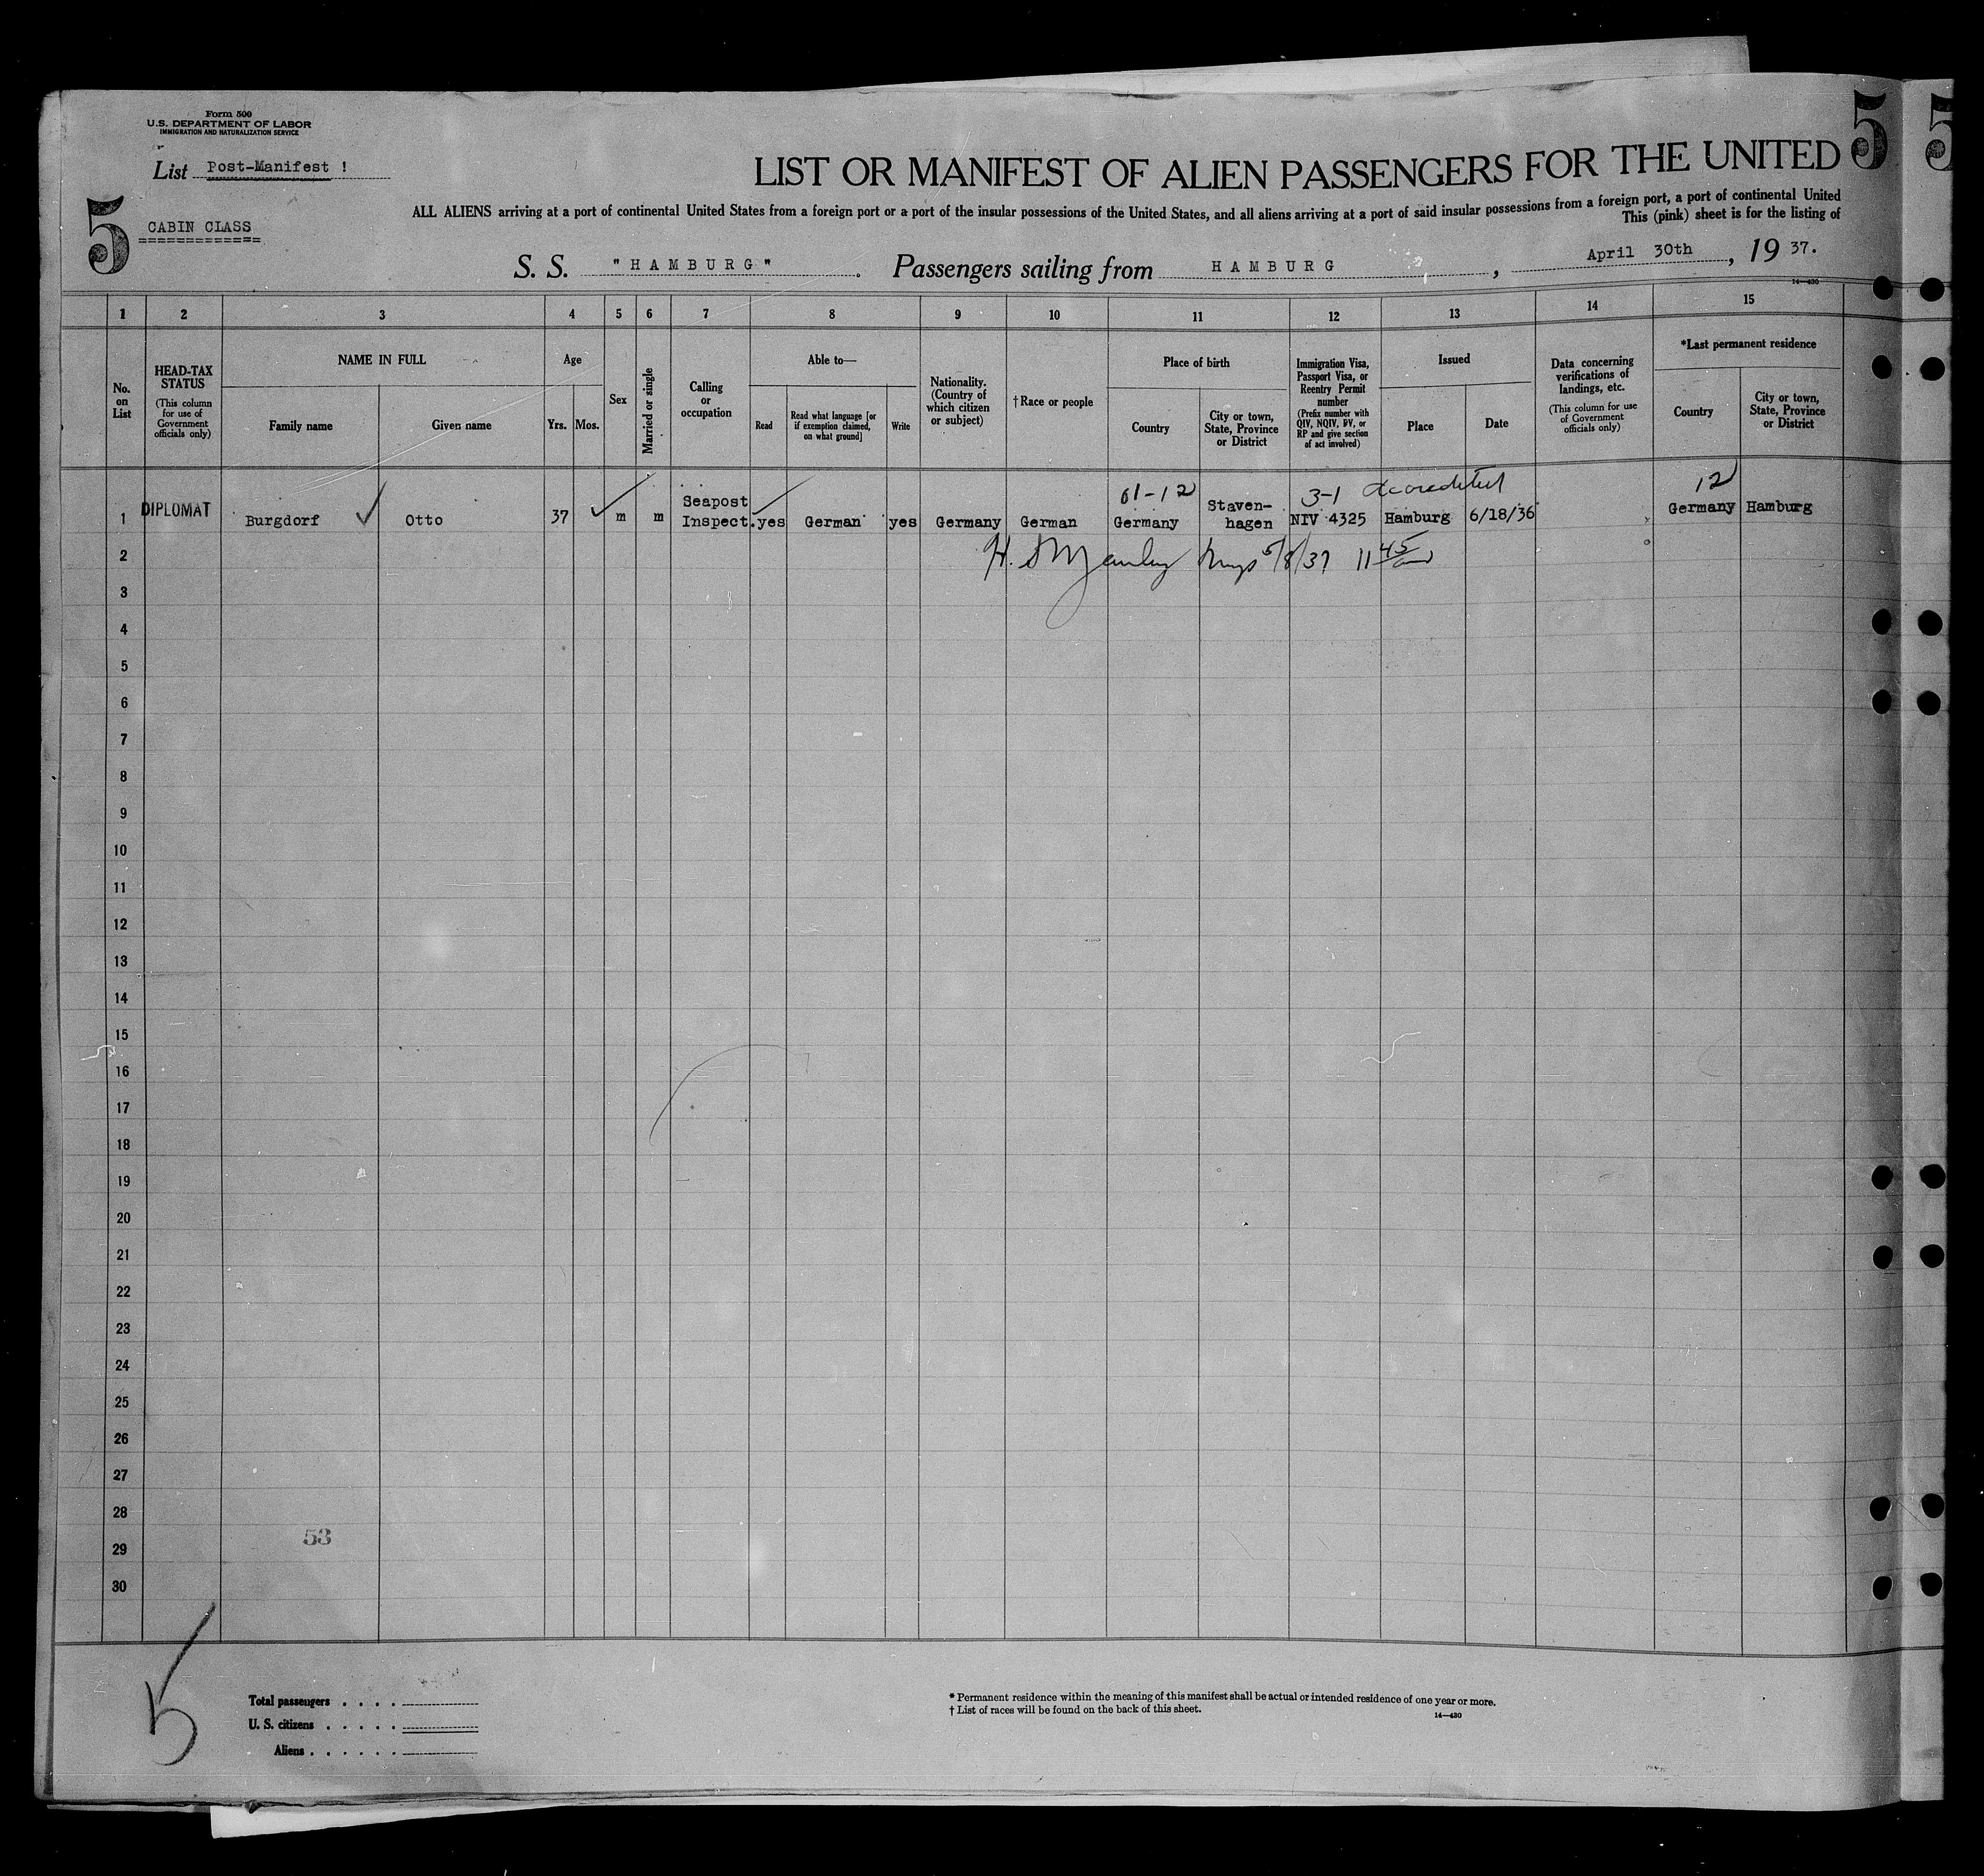 Form 500
U.S. DEPARTMENT OF LABOR
IMMIGRATION AND NATURALIZATION SERVICE
List Post-Manifest !
5
CABIN CLASS
LIST OR MANIFEST OF ALIEN PASSENGERS FOR THE UNITED
5 5
ALL ALIENS arriving at a port of continental United States from a foreign port or a port of the insular possessions of the United States, and all aliens arriving at a port of said insular possessions from a foreign port, a port of continental United
This (pink) sheet is for the listing of
S. S. "HAMBURG". Passengers sailing from HAMBURG, April 30th, 19 37.
14—430
1 2 3 4 5 6 7 8 9 10 11 12 13 14 15
No. on List
HEAD-TAX STATUS
(This column for use of Government officials only)
NAME IN FULL
Family name
Given name
Age
Yrs. Mos.
Sex
Married or single
Calling or occupation
Able to—
Read
Read what language [or if exemption claimed, on what ground]
Write
Nationality. (Country of which citizen or subject)
†Race or people
Place of birth
Country
City or town, State, Province or District
Immigration Visa, Passport Visa, or Reentry Permit number
(Prefix number with QIV, NQIV, PV, or RP and give section of act involved)
Issued
Place
Date
Data concerning verifications of landings, etc.
(This column for use of Government officials only)
*Last permanent residence
Country
City or town, State, Province or District
61-12 3-1 accredited 12
1 DIPLOMAT Burgdorf Otto 37 m m Seapost Inspect. yes German yes Germany German Germany Staven-hagen NIV 4325 Hamburg 6/18/36 Germany Hamburg
2 H. S 5/8/37 11 45
3
4
5
6
7
8
9
10
11
12
13
14
15
16
17
18
19
20
21
22
23
24
25
26
27
28
53
29
30
5
Total passengers . . . .
U. S. citizens . . . . .
Aliens . . . . . .
* Permanent residence within the meaning of this manifest shall be actual or intended residence of one year or more.
† List of races will be found on the back of this sheet.
14—430